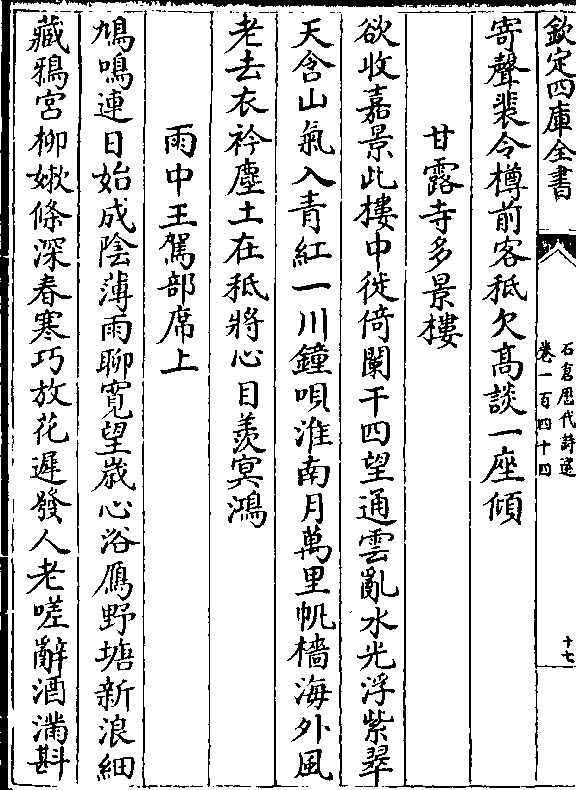 欽定四庫全書
石倉歷代詩選
卷一百四十四
十七
寄聲裴令樽前客秪欠髙談一座傾
甘露寺多景樓
欲收嘉景此樓中徙倚闌干四望通雲亂水光浮紫翠
天含山氣入青紅一川鐘唄淮南月萬里帆檣海外風
老去衣衿塵土在秪將心目羨冥鴻
雨中王駕部席上
鳩鳴連日始成陰薄雨聊寛望嵗心浴鴈野塘新浪細
藏鴉宫柳嫰條深春寒巧放花遲發人老嗟辭酒滿斟